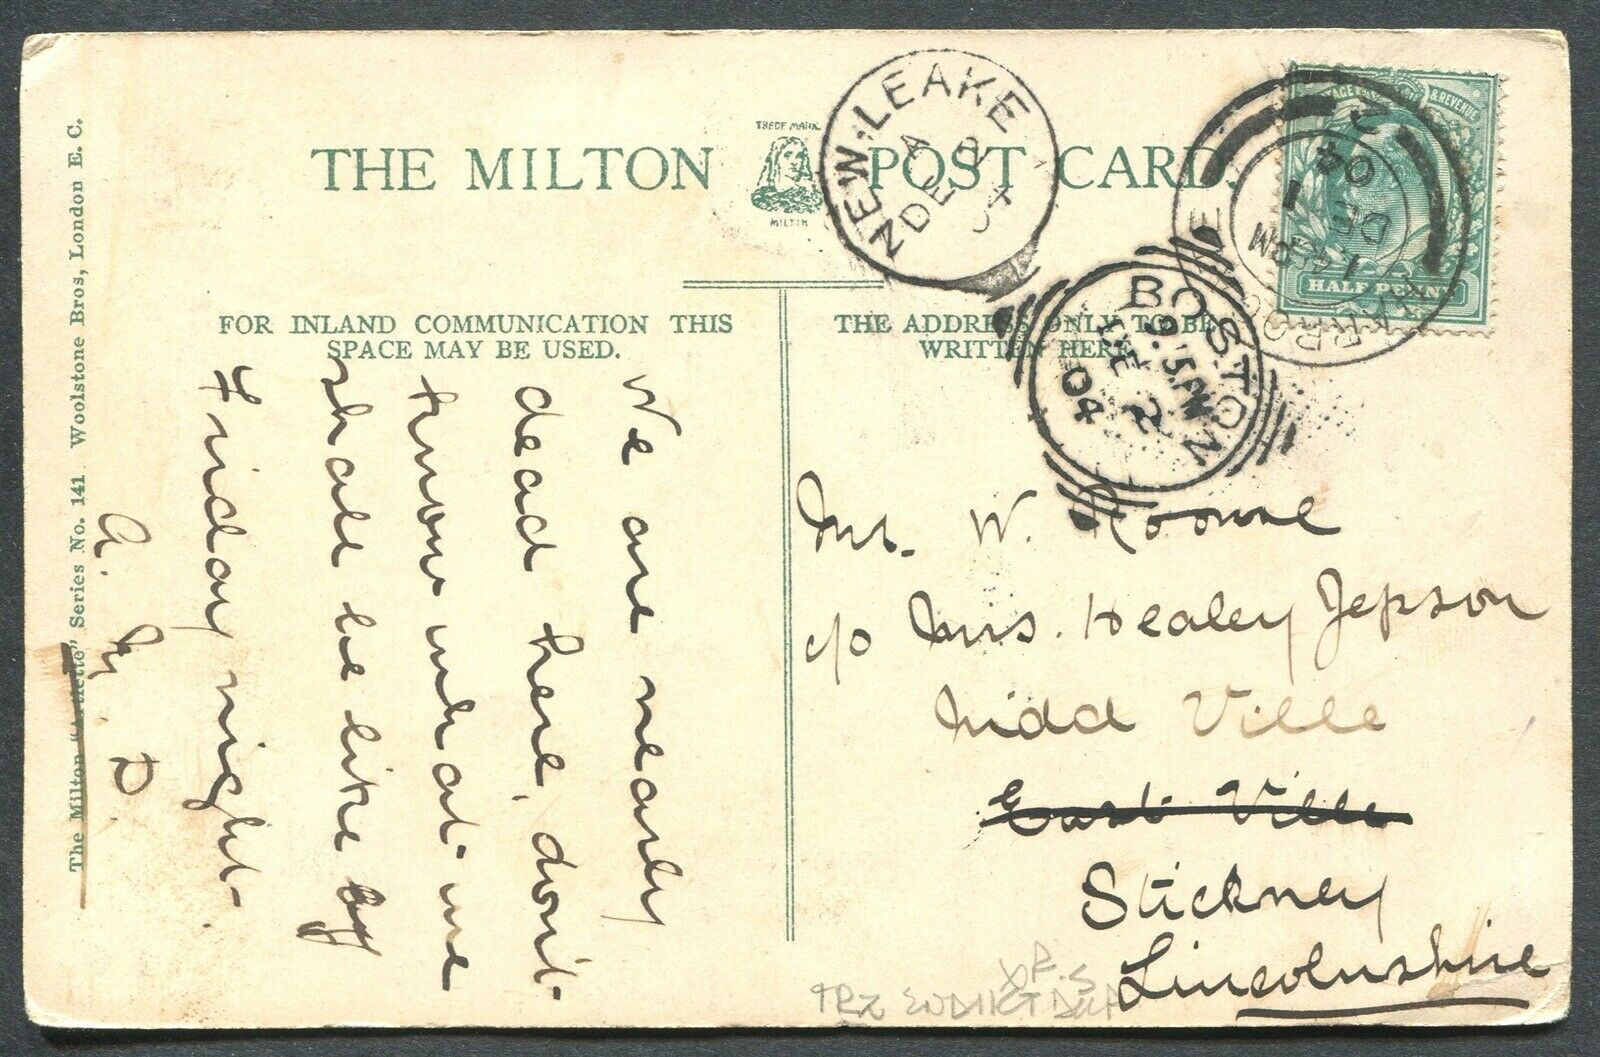 THE MILTON POST CARD.
TRADE MARK
MILTON
FOR INLAND COMMUNICATION THIS
SPACE MAY BE USED.
THE ADDRESS ONLY TO BE
WRITTEN HERE
The Milton "Artlette" Series No. 141 Woolstone Bros, London E. C.
We are nearly
dead here, don't
know what we
shall be like by
Friday night.
A. M. D.
Mr. W. Roome
c/o Mrs. Healey Jepson
Midd Ville
East Ville
Stickney
Lincolnshire
NEW LEAKE
A
DE 2
04
BOSTON
9.15PM
DE 2
04
HARROGATE
DE 1
04
2
POSTAGE & REVENUE
HALF PENNY